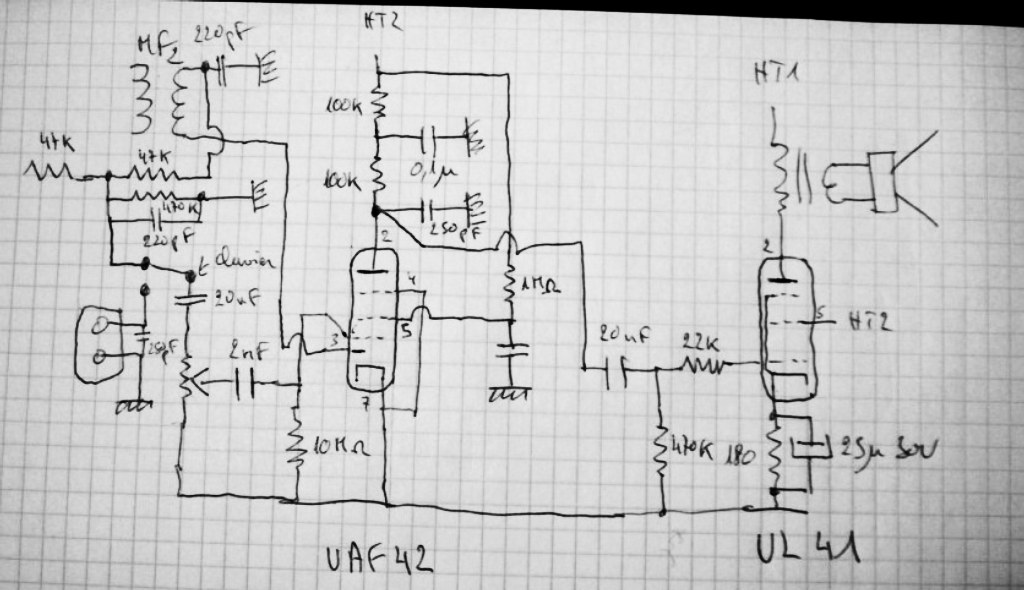 HT2
MF2
220pF
HT1
100K
47K
47K
0,1µ
100K
470K
250pF
220pF
2
2
4
1MΩ
20nF
5
5
HT2
20nF
22K
250pF
2nF
3
7
10MΩ
470K
180
25µ 50V
UAF42
UL41